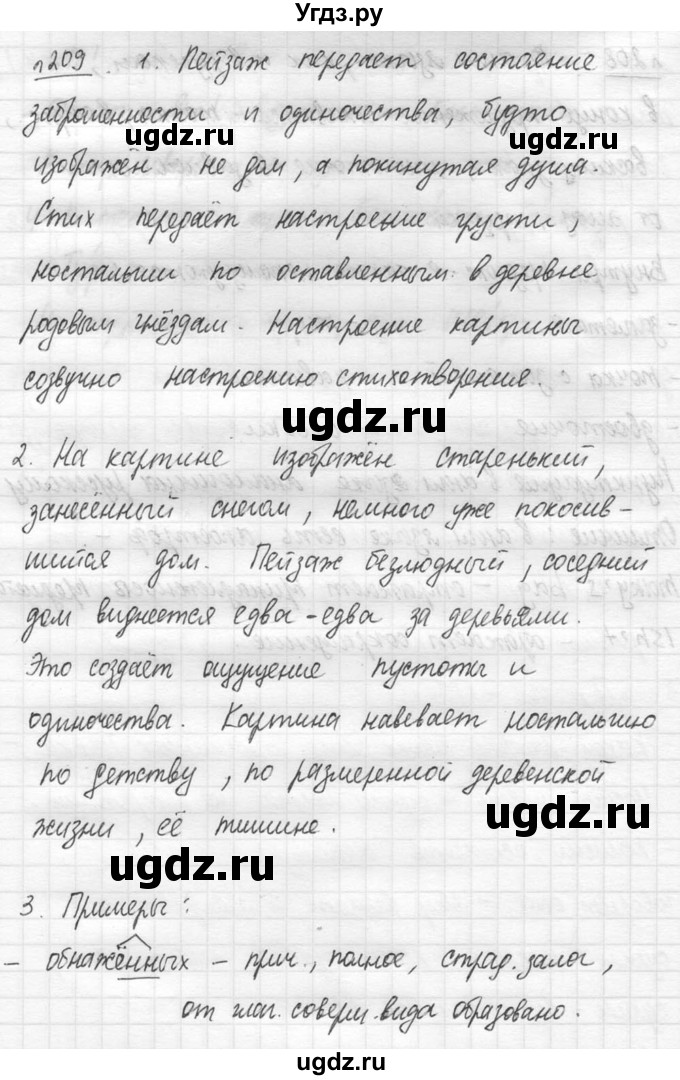 Угдз.ру
п209 1. Пейзаж передает состояние
заброшенности и одиночества, будто
ugdz.ru
изображён не дом, а покинутая душа.
Стих передаёт настроение грусти,
ностальгии по оставленным в деревне
родовым гнёздам. Настроение картины
созвучно настроению стихотворения.
ugdz.ru
2. На картине изображён старенький,
занесённый снегом, немного уже покосив-
шийся дом. Пейзаж безлюдный, соседний
ugdz.ru
дом виднеется едва-едва за деревьями.
Это создаёт ощущение пустоты и
одиночества. Картина навевает ностальгию
по детству, по размеренной деревенской
ugdz.ru
жизни, её тишине.
ugdz.ru
3. Примеры:
- обнажённых - прич., полное, страд. залог,
от глаг. соверш. вида образовано.
ugdz.ru